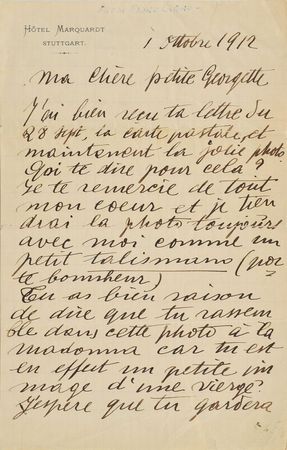 HÔTEL MARQUARDT
STUTTGART.
1 8ttobre 1912
Ma chère petite Georgette
J'ai bien reçu ta lettre du
28 sept, la carte postale, et
maintenant la jolie photo.
Qoi te dire pour cela?
Je te remercie de tout
mon coeur et je tien
drai la photo toujours
avec moi comme un
petit talismano (por
te bomnheur)
Tu as bien raison
de dire que tu rassem
ble dans cette photo à la
madonna car tu est
en effect un petite im
mage d'une vierge.
J'espère que tu gardera